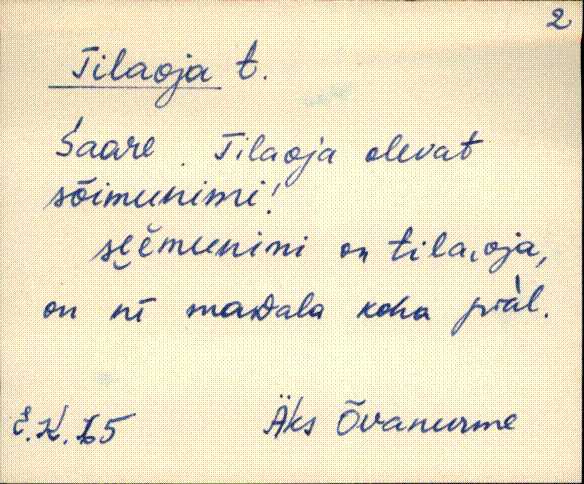 2
Tilaoja t.
Saare. Tilaoja olevat
sõimunimi!
on tila,oja,
on madala koha piàl.
E.K. Äks Õvanurme